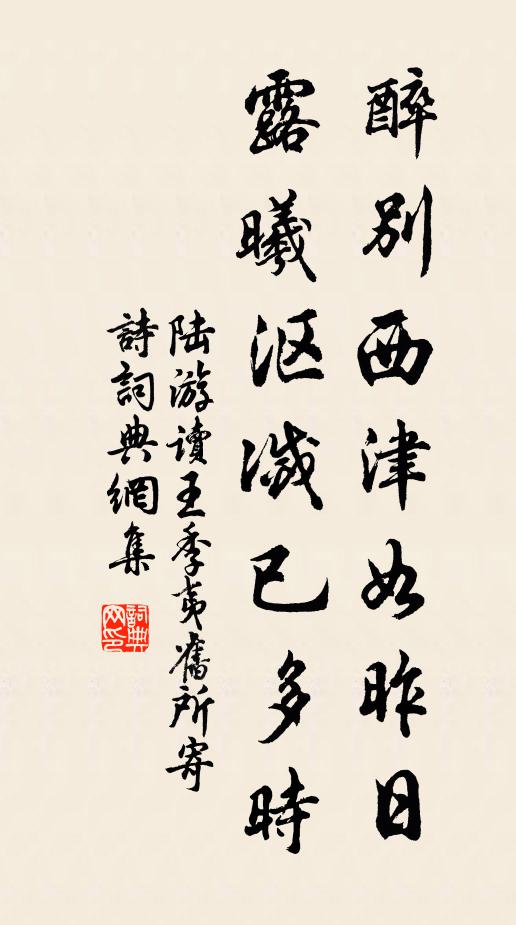 醉别西津如昨日
露曦沤滅已多時
陆游讀王季夷舊所寄
詩詞典網集
詞典网印